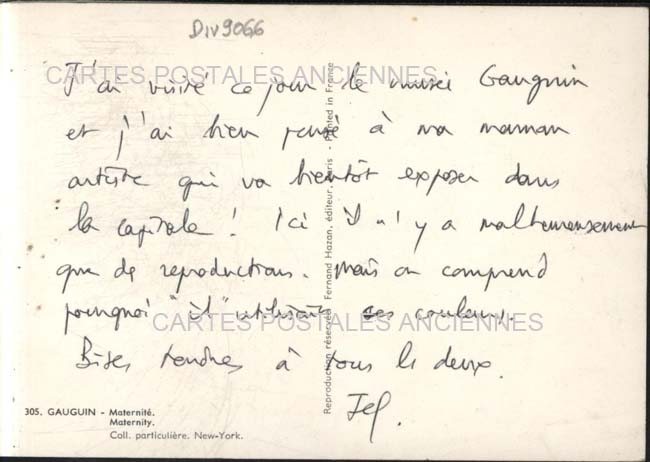 Div9066
CARTES POSTALES ANCIENNES
J'ai visité ce jour le musée Gauguin
et j'ai bien pensé à ma maman
artiste qui va bientôt exposer dans
la capitale ! Ici il n'y a malheureusement
que de reproductions. Mais on comprend
pourquoi "il" utilisait ces couleurs.
CARTES POSTALES ANCIENNES
Bises tendres à tous les deux.
Jef.
305. GAUGUIN - Maternité.
Maternity.
Coll. particulière. New-York.
Reproduction réservée Fernand Hazan, éditeur, Paris - Printed in France